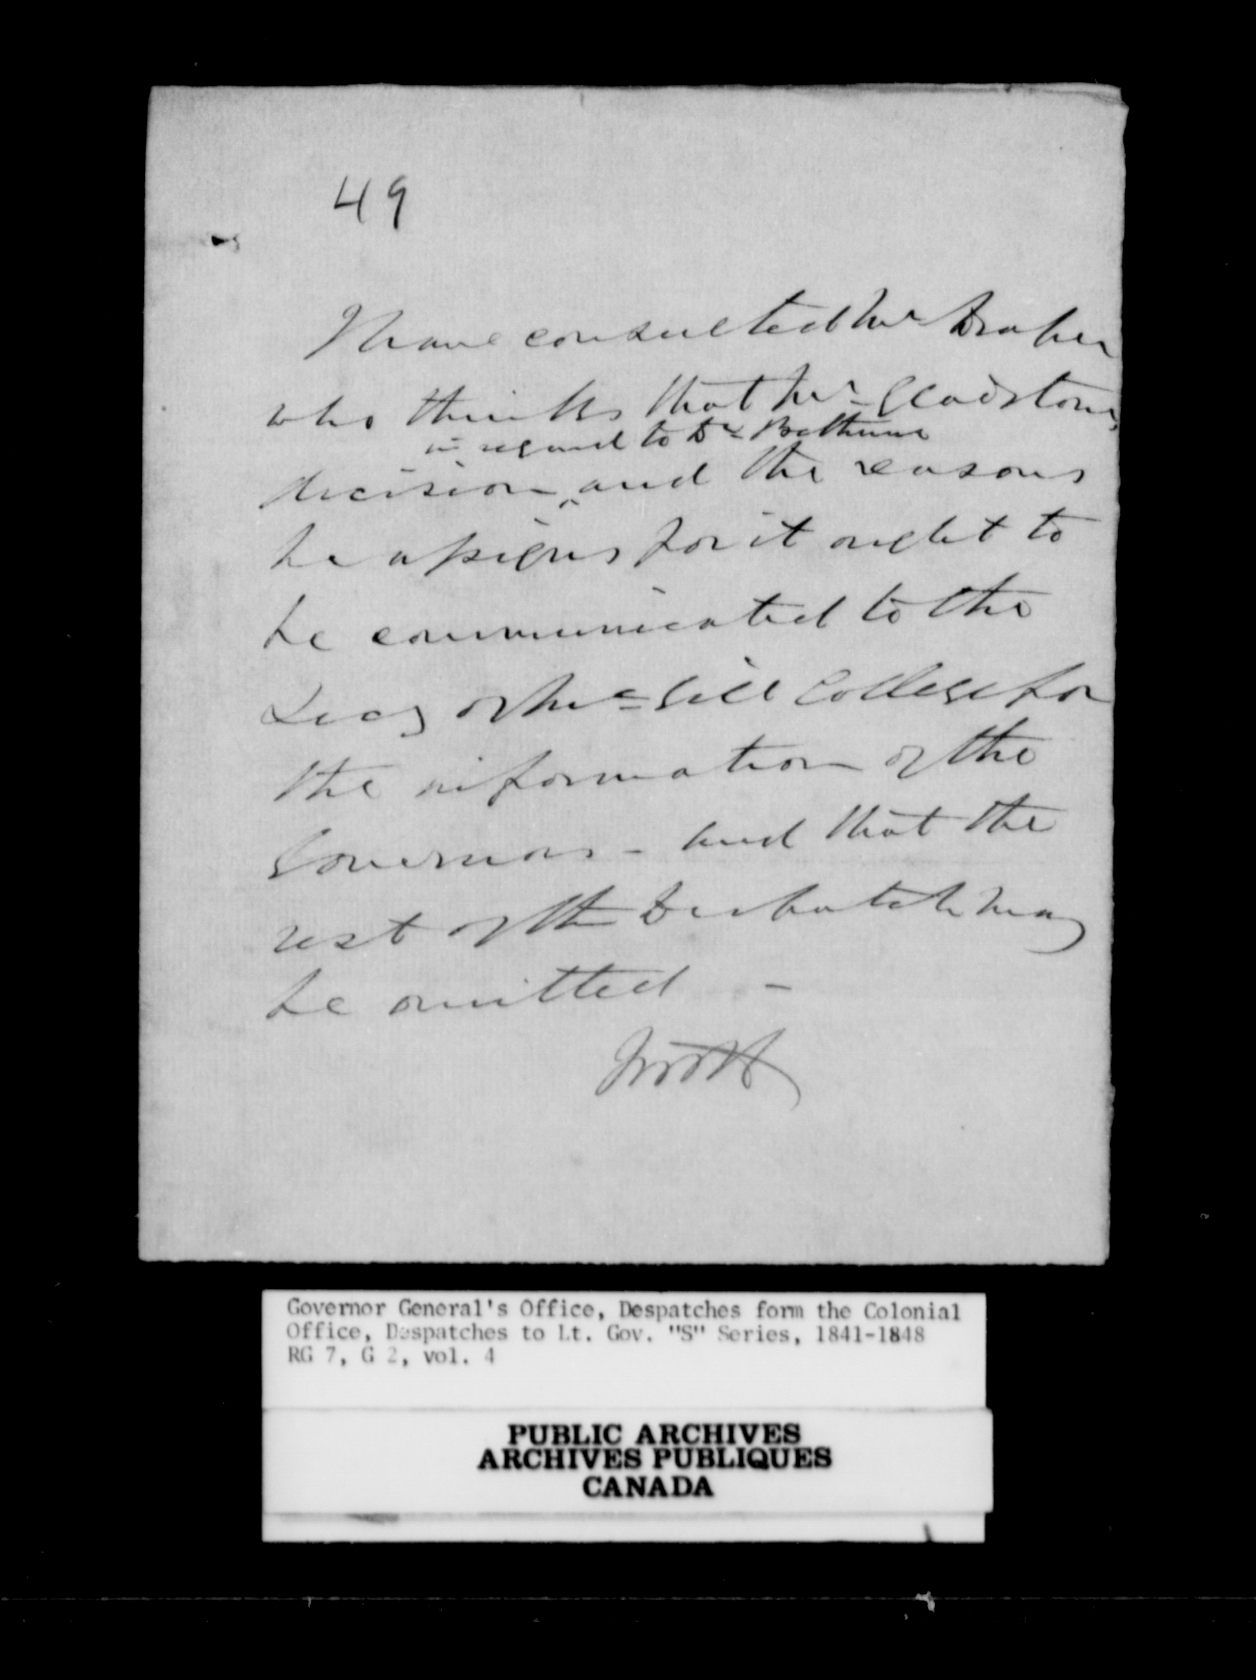 49
I have consulted Mr Draper
who thinks that Mr Gladstone's
in regard to Dr Bethune
decision and the reasons
he assigns for it ought to
be communicated to the
Secy of McGill College for
the information of the
Governors - and that the
rest of the Despatch may
be omitted -
Governor General's Office, Despatches form the Colonial
Office, Despatches to Lt. Gov. "S" Series, 1841-1848
RG 7, G 2, vol. 4
PUBLIC ARCHIVES
ARCHIVES PUBLIQUES
CANADA